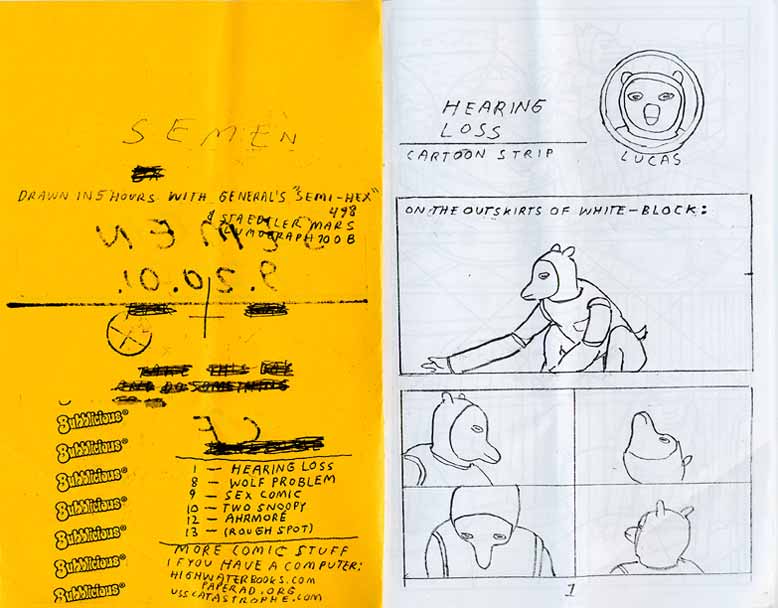 SEMEN
DRAWN IN 5 HOURS WITH GENERAL'S "SEMI-HEX"
498
& STAEDTLER MARS
LUMOGRAPH 100 B
Bubblicious®
Bubblicious®
Bubblicious®
Bubblicious®
Bubblicious®
Bubblicious®
Bubblicious®
1 — HEARING LOSS
8 — WOLF PROBLEM
9 — SEX COMIC
10 — TWO SNOOPY
12 — AHRMORE
13 — (ROUGH SPOT)
MORE COMIC STUFF
IF YOU HAVE A COMPUTER:
HIGHWATERBOOKS.COM
PAPERRAD.ORG
USSCATASTROPHE.COM
HEARING
LOSS
CARTOON STRIP
LUCAS
ON THE OUTSKIRTS OF WHITE-BLOCK:
1